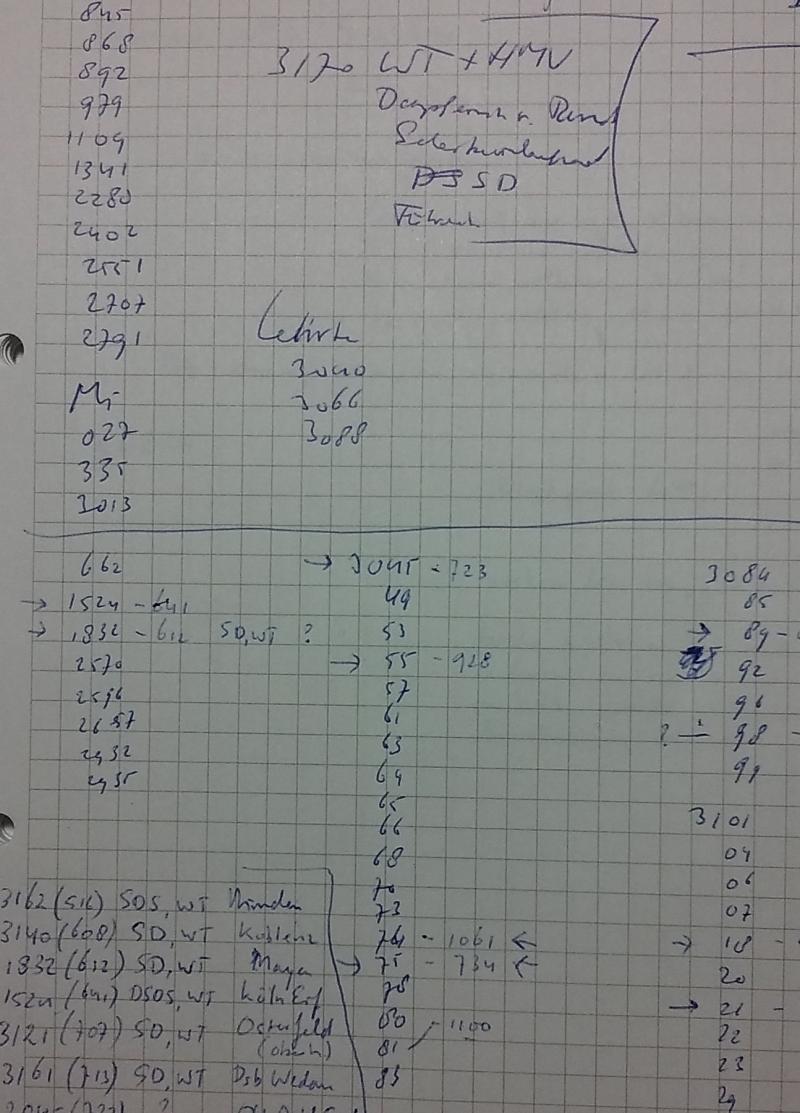 845
868
892
979
1109
1341
2280
2402
2551
2707
2791
3170 WT + HMV
SD
Führer
Lehrte
3040
3066
3088
027
335
3013
662
→ 1524 - 641
→ 1832 - 612 SD, WT ?
2570
2596
2657
2932
2935
→ 3045 - 723
49
53
→ 55 - 928
57
61
63
64
65
66
68
70
73
74 - 1061 ←
→ 75 - 734 ←
78
80
81 - 1100
83
3084
85
→ 89 -
92
96
? 98 -
99
3101
04
06
07
→ 18 -
20
→ 21 -
22
23
29
3162 (516) SDS, WT Minden
3140 (608) SD, WT Koblenz
1832 (612) SD, WT
1524 (641) DSDS, WT Köln Eif
3121 (707) SD, WT Osterfeld
(oben)
3161 (713) SD, WT Dsb Wedau